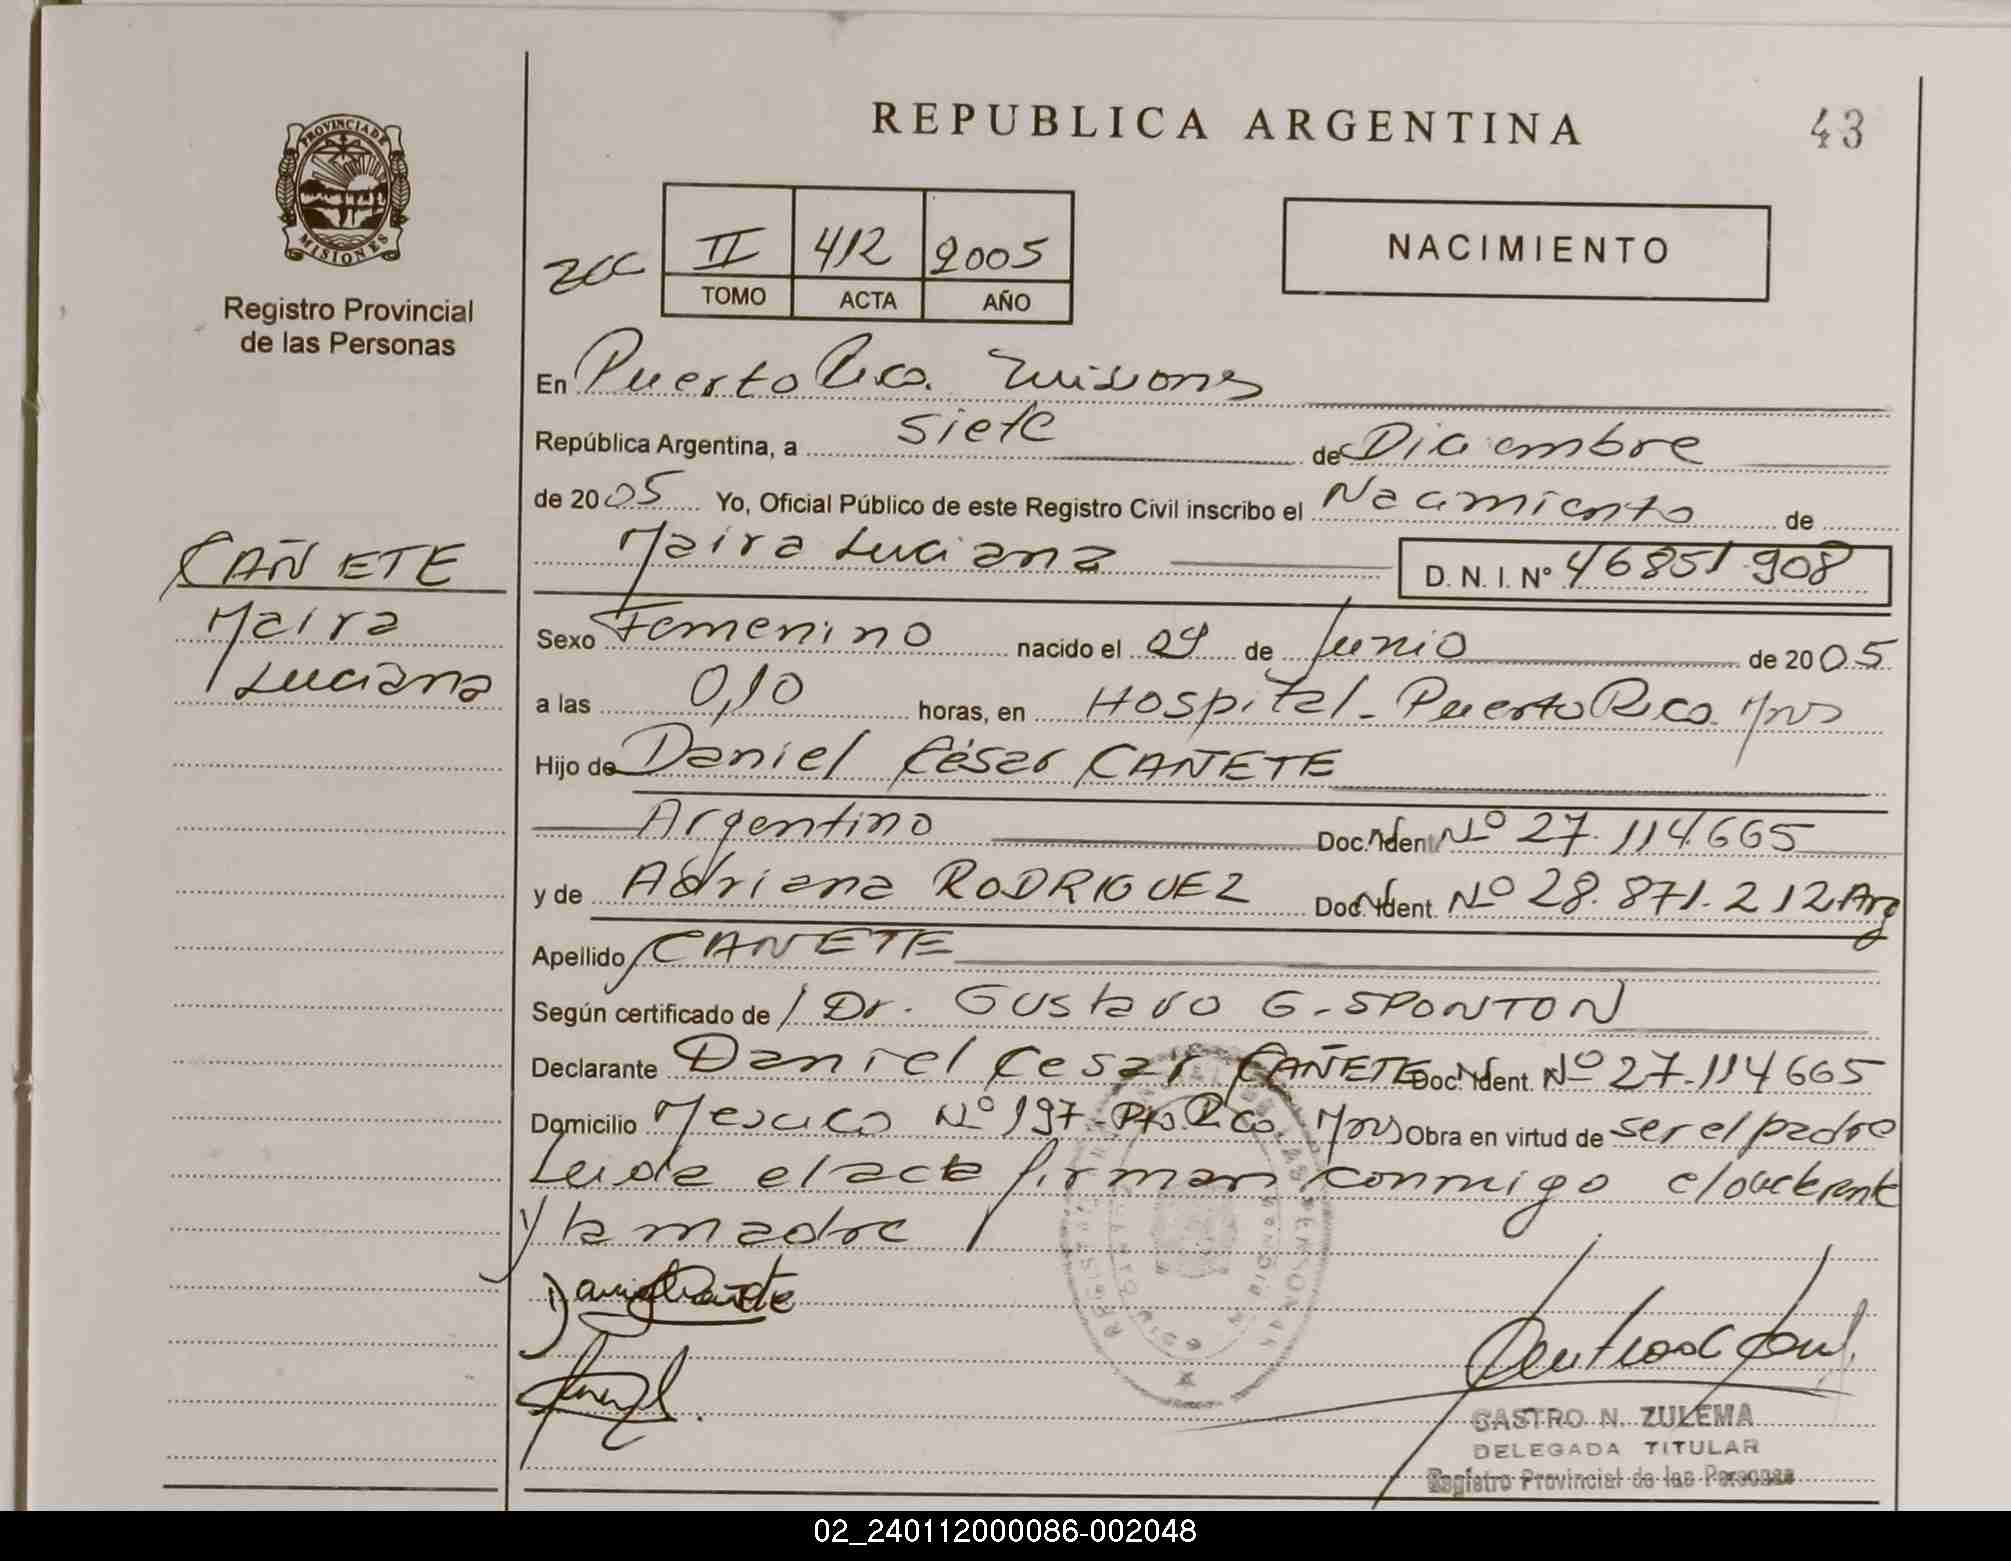 REPUBLICA ARGENTINA
43
PROVINCIA DE
MISIONES
Registro Provincial
de las Personas
II 412 2005
TOMO ACTA AÑO
NACIMIENTO
En Puerto Rico. Misiones
República Argentina, a siete de Diciembre
de 2005 Yo, Oficial Público de este Registro Civil inscribo el Nacimiento de
Maira Luciana D. N. I. Nº 46851.908
CAÑETE
Maira
Luciana
Sexo Femenino nacido el 09 de Junio de 2005
a las 0,10 horas, en Hospital - Puerto Rico. Mns
Hijo de Daniel César CAÑETE
Argentino Doc. Ident. Nº 27.114.665
y de Adriana RODRIGUEZ Doc. Ident. Nº 28.871.212 Arg
Apellido CAÑETE
Según certificado de Dr. Gustavo G. SPONTON
Declarante Daniel Cesar CAÑETE Doc. Ident. Nº 27.114665
Domicilio Nº 197 - Pto Rico Mns Obra en virtud de ser el padre
Leida el acta firman conmigo el declarante
y la madre
CASTRO N. ZULEMA
DELEGADA TITULAR
Registro Provincial de las Personas
02_240112000086-002048